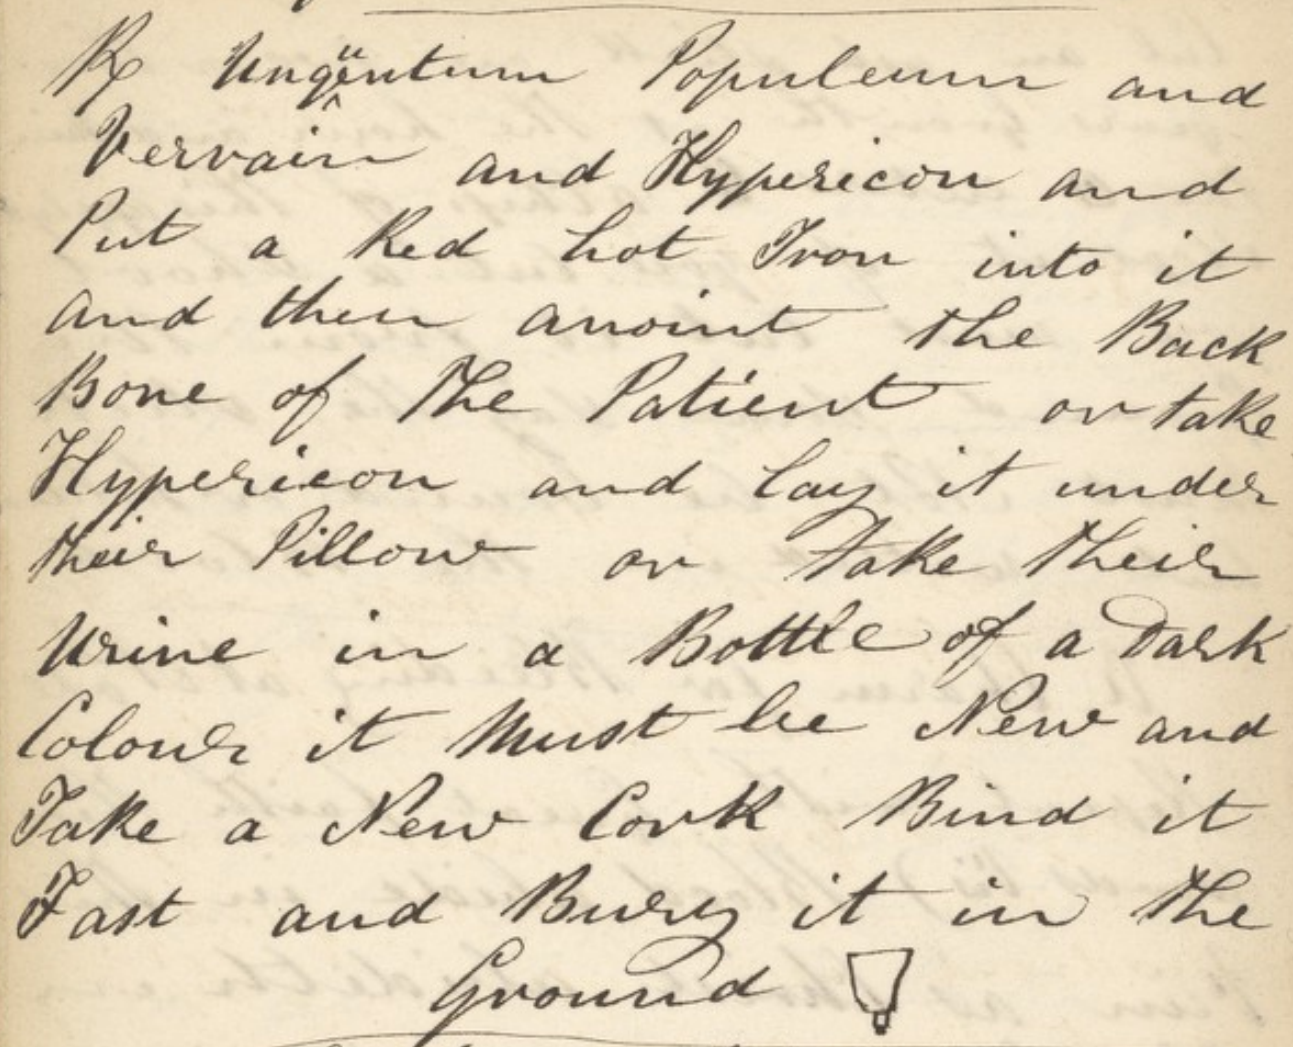 ℞ Unguentum Populeum and
Vervain and Hypericon and
Put a Red hot Iron into it
and then anoint the Back
Bone of The Patient or take
Hypericon and lay it under
their Pillow or Take Their
Urine in a Bottle of a Dark
Colour it Must be New and
Take a New Cork Bind it
Fast and Burey it in The
Ground